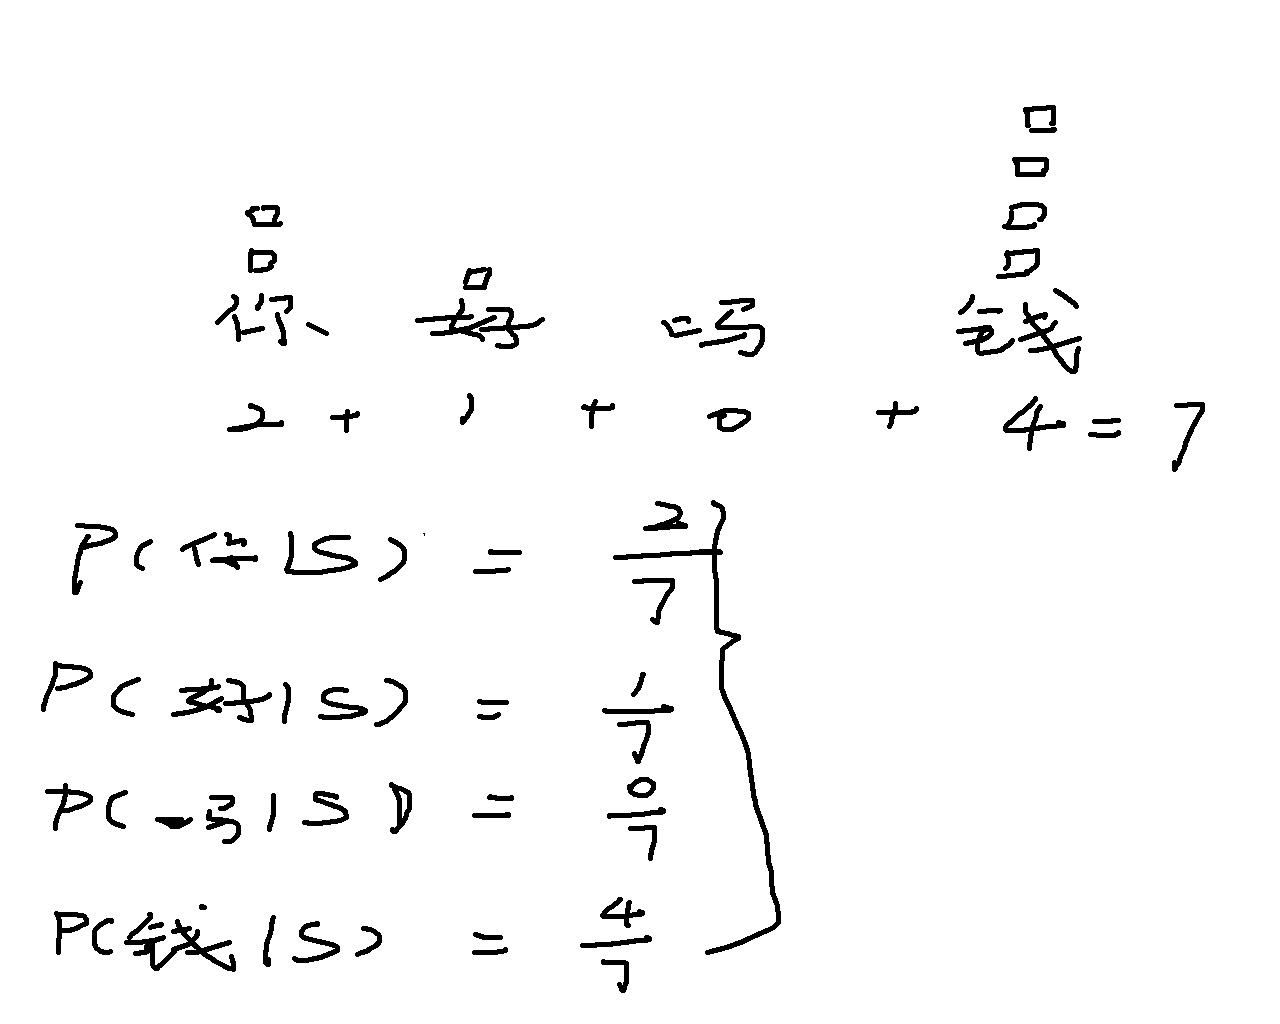 你 好 吗 钱
2 + 1 + 0 + 4 = 7
P( |S) = 2/7
P(好|S) = 1/7
P( |S) = 0/7
P(钱|S) = 4/7